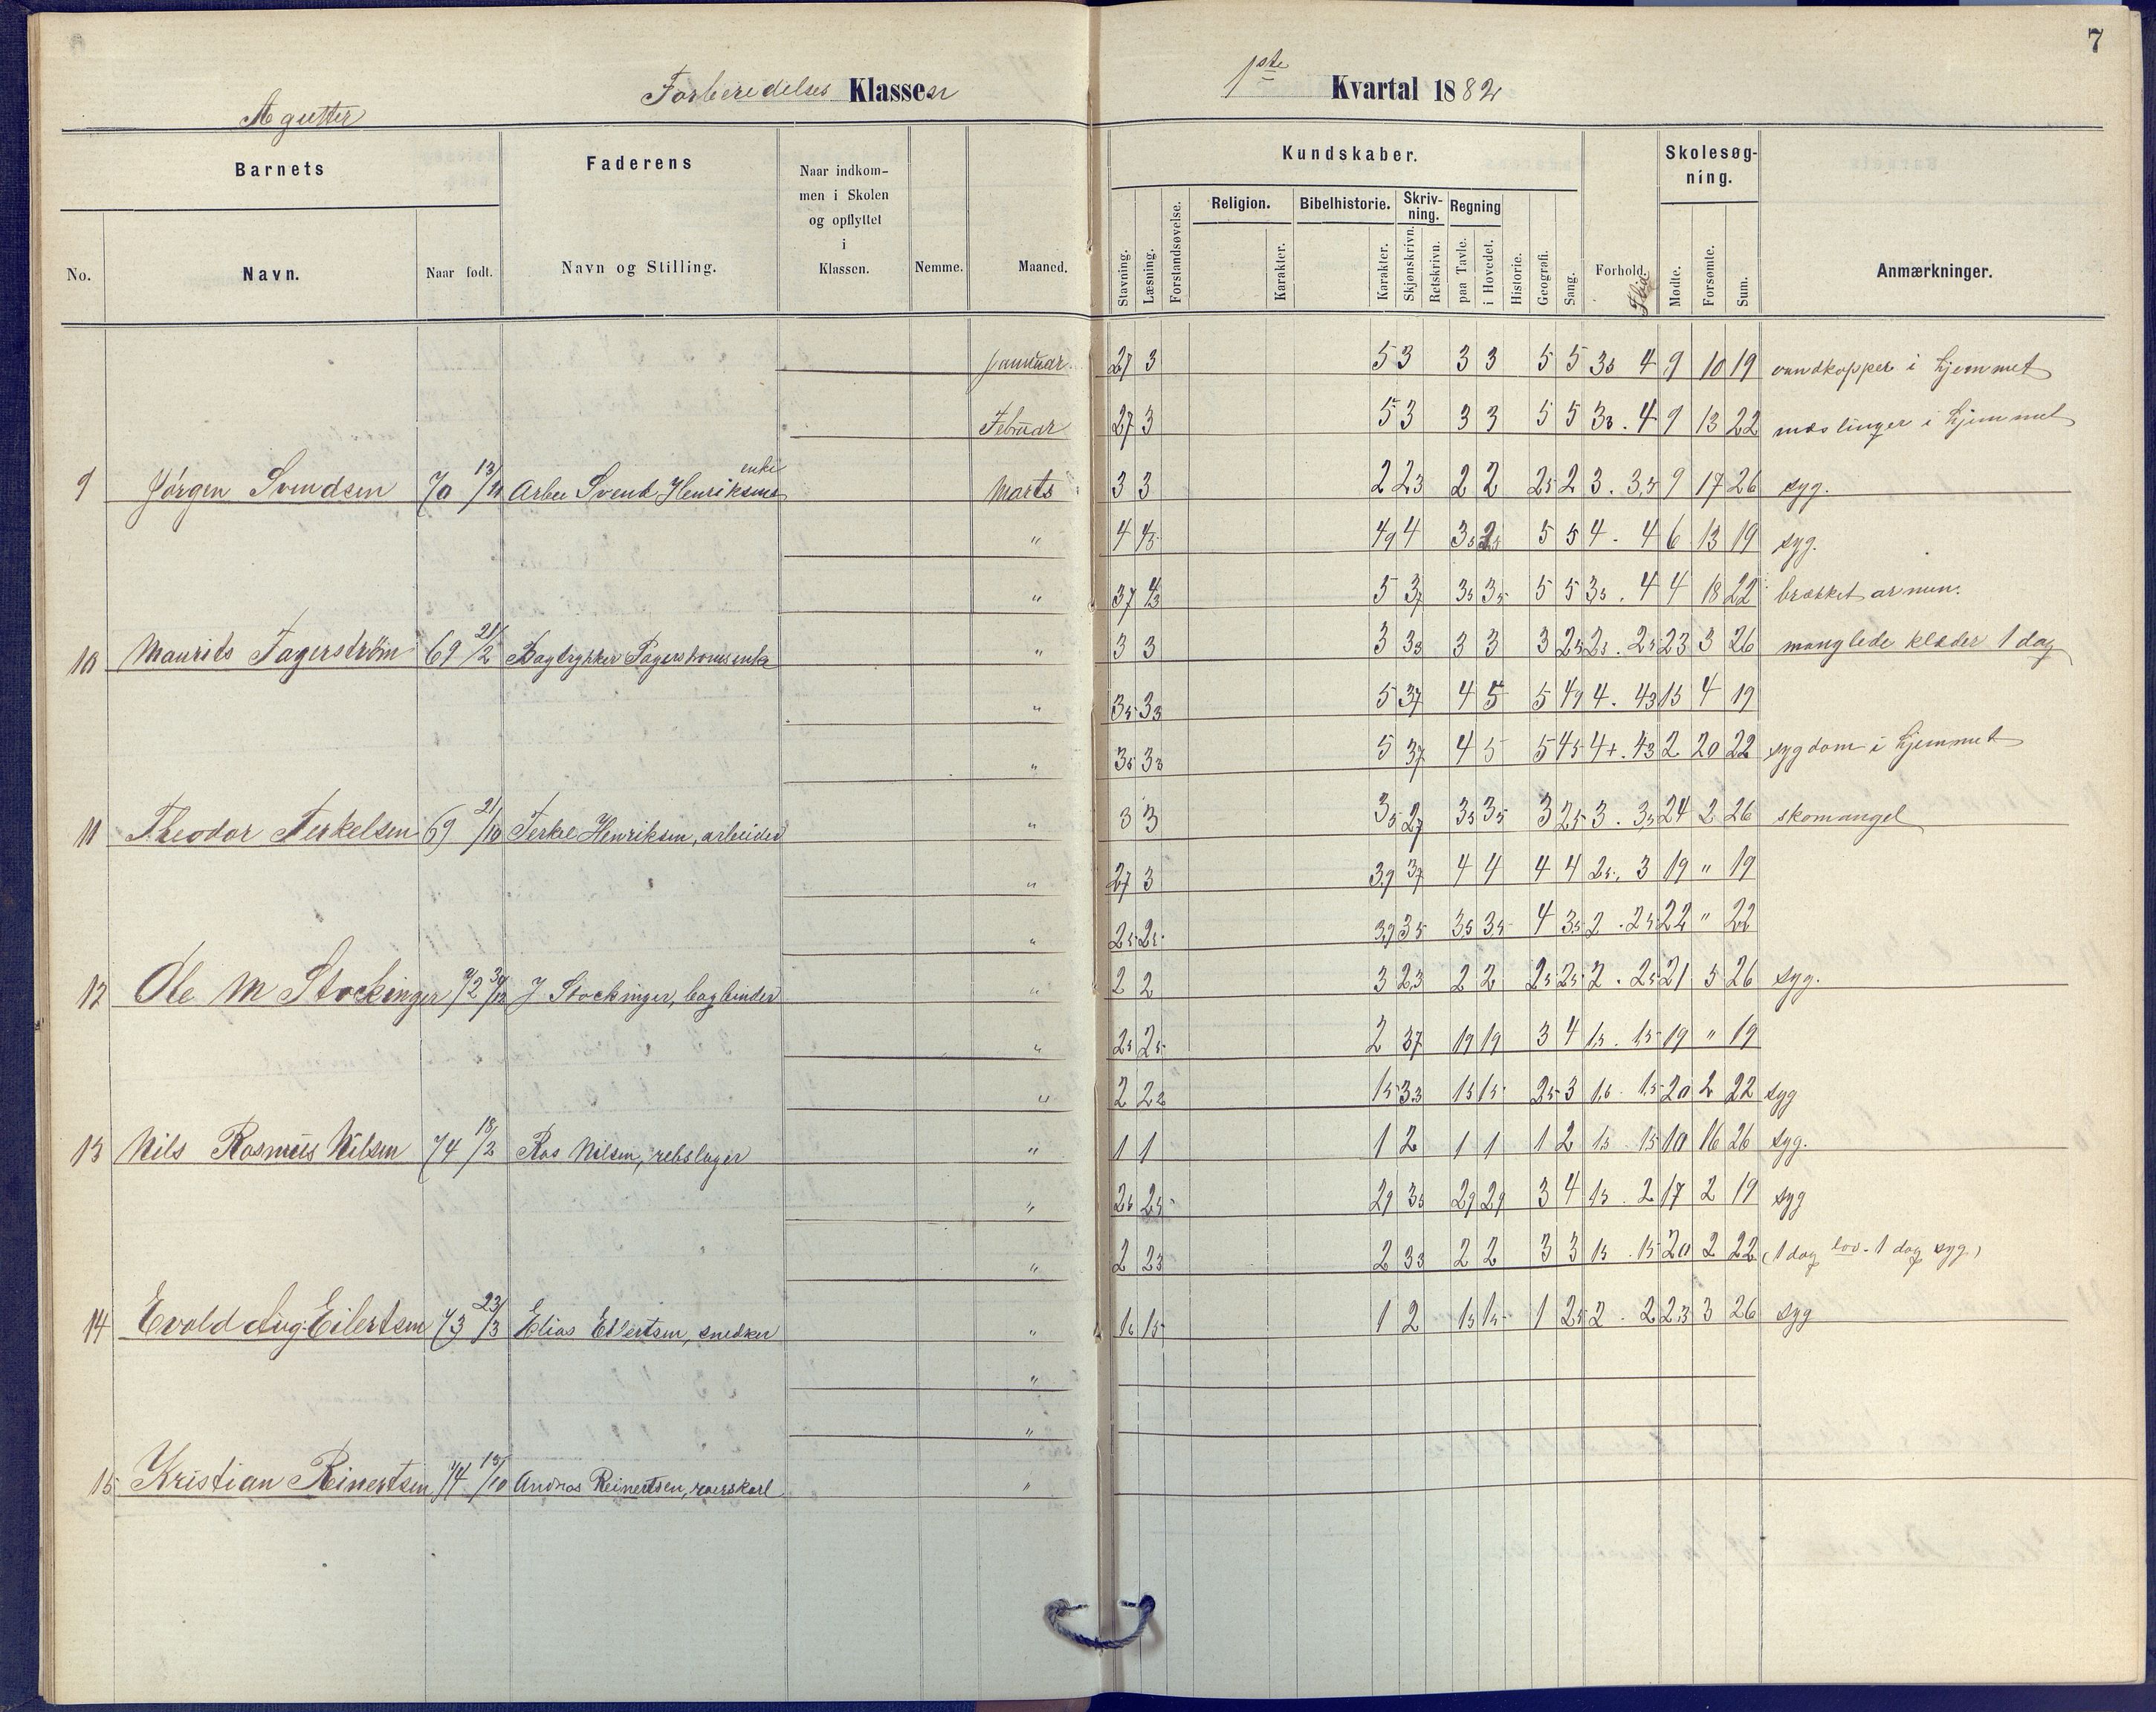 7
Forberedelses Klassen
1ste Kvartal 1882
A gutter
Barnets Faderens Naar indkommen i Skolen og opflyttet i Klassen. Nemme. Maaned. Kundskaber. Forhold. Flid Skolesøgning. Anmærkninger.
No. Navn. Naar født. Navn og Stilling. Stavning. Læsning. Forstandsøvelse. Religion. Karakter. Bibelhistorie. Karakter. Skrivning. Skjønskrivn. Retskrivn. Regning paa Tavle. i Hovedet. Historie. Geografi. Sang. Mødte. Forsømte. Sum.
Januar 27 3 5 3 3 3 5 5 35 4 9 10 19 vandkopper i hjemmet
Februar 27 3 5 3 3 3 5 5 33. 4 9 13 22 mæslinger i hjemmet
9 Jørgen Svendsen 70 Arbei Svend Henriksens enke Marts 3 3 2 23 2 2 25 2 3. 3,5 9 17 26 syg.
" 4 45 49 4 35 25 5 5 4. 4 6 13 19 syg.
" 37 43 5 37 35 35 5 5 35. 4 4 18 22 brækket armen.
10 Maurits Fagerstrøm 69 21/2 Bogtrykker Fagerstroms enke " 3 3 3 33 3 3 3 25 25. 25 23 3 26 manglede klæder 1 dag
" 35 33 5 37 4 5 5 49 4. 43 15 4 19
" 35 33 5 37 4 5 5 45 4+. 43 2 20 22 sygdom i hjemmet
11 Theodor Terkelsen 69 21/10 Terkel Henriksen, arbeider " 3 3 35 27 35 35 3 25 3. 3,5 24 2 26 skomangel
" 27 3 39 37 4 4 4 4 25. 3 19 " 19
" 25 25 39 35 35 35 4 35 2. 25 22 " 22
12 Ole M Stockinger 72 30/12 J Stockinger, bogbinder " 2 2 3 23 2 2 25 25 2. 25 21 5 26 syg.
" 25 25 2 37 19 19 3 4 15. 15 19 " 19
" 2 22 15 33 15 15 25 3 1,6 15 20 2 22 syg
13 Nils Rasmus Nilsen 74 18/2 Ras Nilsen, rebslager " 1 1 1 2 1 1 1 2 15 15 10 16 26 syg.
" 26 25 29 35 29 29 3 4 15. 2 17 2 19 syg
" 2 23 2 33 2 2 3 3 15. 15 20 2 22 (1 dag lov - 1 dag syg.)
14 Evald Aug. Eilertsen 73 23/3 Elias Eilertsen, snedker " 16 15 1 2 15 15 1 25 2. 2 23 3 26 syg
"
"
15 Kristian Reinertsen 74 15/10 Andreas Reinertsen, roerskarl "